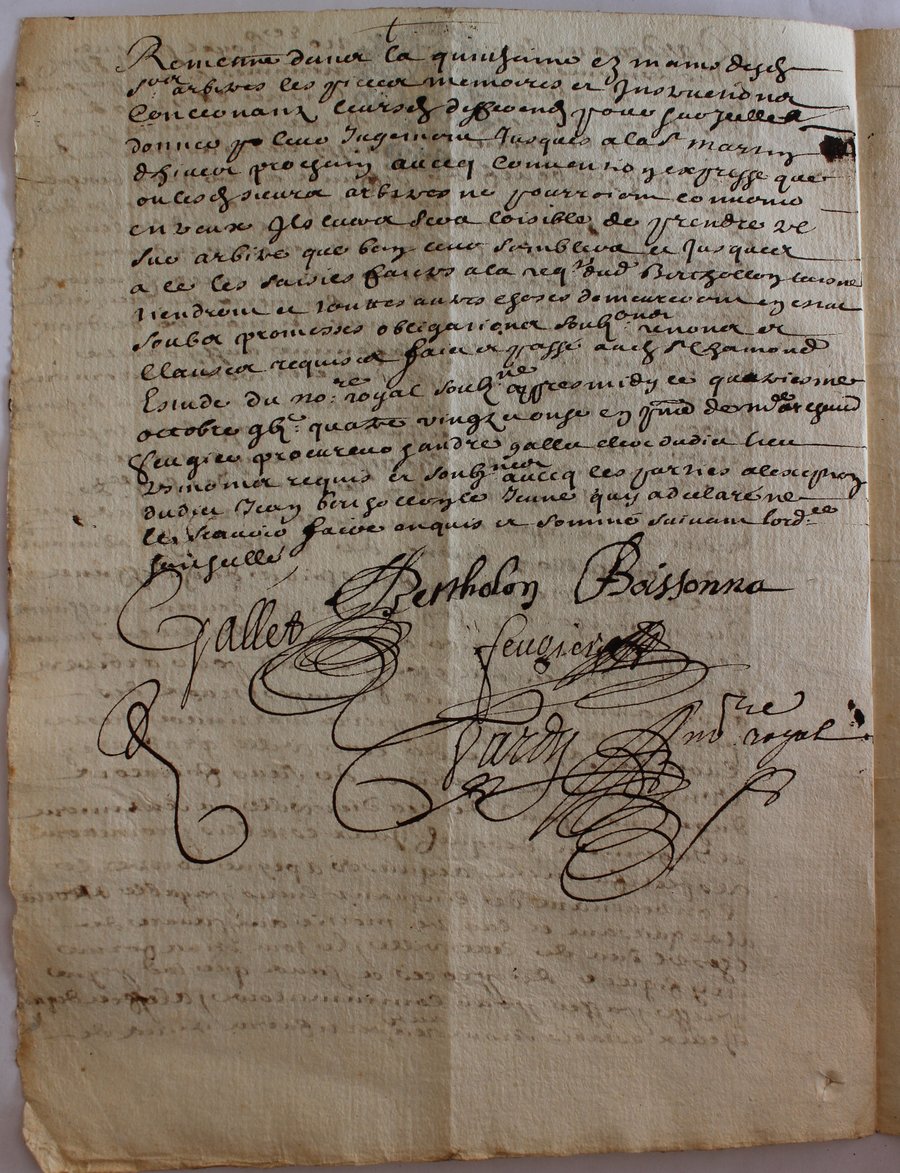 Remettre dans la quinzaine ez mains desd
srs arbitres les pieces memoires et Instructions
Concernant leursd differend pour sur jcelles
donner leur Jugement Jusques a la St martin
dhiuer prochain aueq Conuention expresse que
ou lesd sieurs arbitres ne pourroient conuenir
entreux Jls leurs sera loisible de prendre
sur arbitre que bon leur semblera et Jusques
a ce les saisies faittes a la reqte dud Berthollon
tiendront et touttes autres choses demeureront en estat
soubz promesses obligations soubzons renons et
Clauses requises fait et passé aud St Chamond
Estude du nore royal soubzne apres midy ce quatriesme
octobre gbc quatre vingtz onze en pnce de
feugier procureur andre gallet clerc dudit lieu
tesmoins requis et soubznez aueq les parties a lexception
dudit Jean le Jeune quy a declaré ne
le scauoir faire enquis et sommé suiuant lordce
Gallet Bertholon Boissonna
feugier
Tardy nore royal